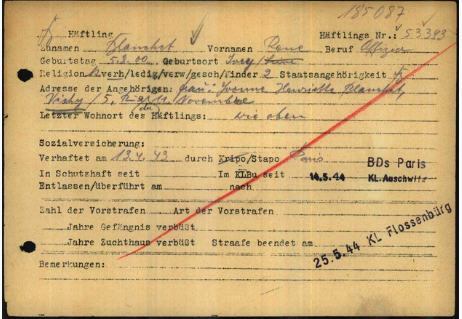 185087
F Häftling Häftlings Nr.: 53393
Zunamen Blanchet Vornamen Rene Beruf Offizier
Geburtstag 5.3.00 Geburtsort Ivry/Seine
Religion verh/ledig/verw/gesch/Kinder 2 Staatsangehörigkeit F
Adresse der Angehörigen: Frau: Yvonne Henriette Blanchet,
Vichy / 5, Novembre
Letzter Wohnort des Häftlings: wie oben
Sozialversicherung:
Verhaftet am 13.4.43 durch Kripo/Stapo Paris
In Schutzhaft seit Im KLBu seit 14.5.44 BDs Paris
KL.Auschwitz
Entlassen/Überführt am nach
Zahl der Vorstrafen Art der Vorstrafen
Jahre Gefängnis verbüßt
Jahre Zuchthaus verbüßt Straafe beendet am
25.5.44 KL Flossenbürg
Bemerkungen: